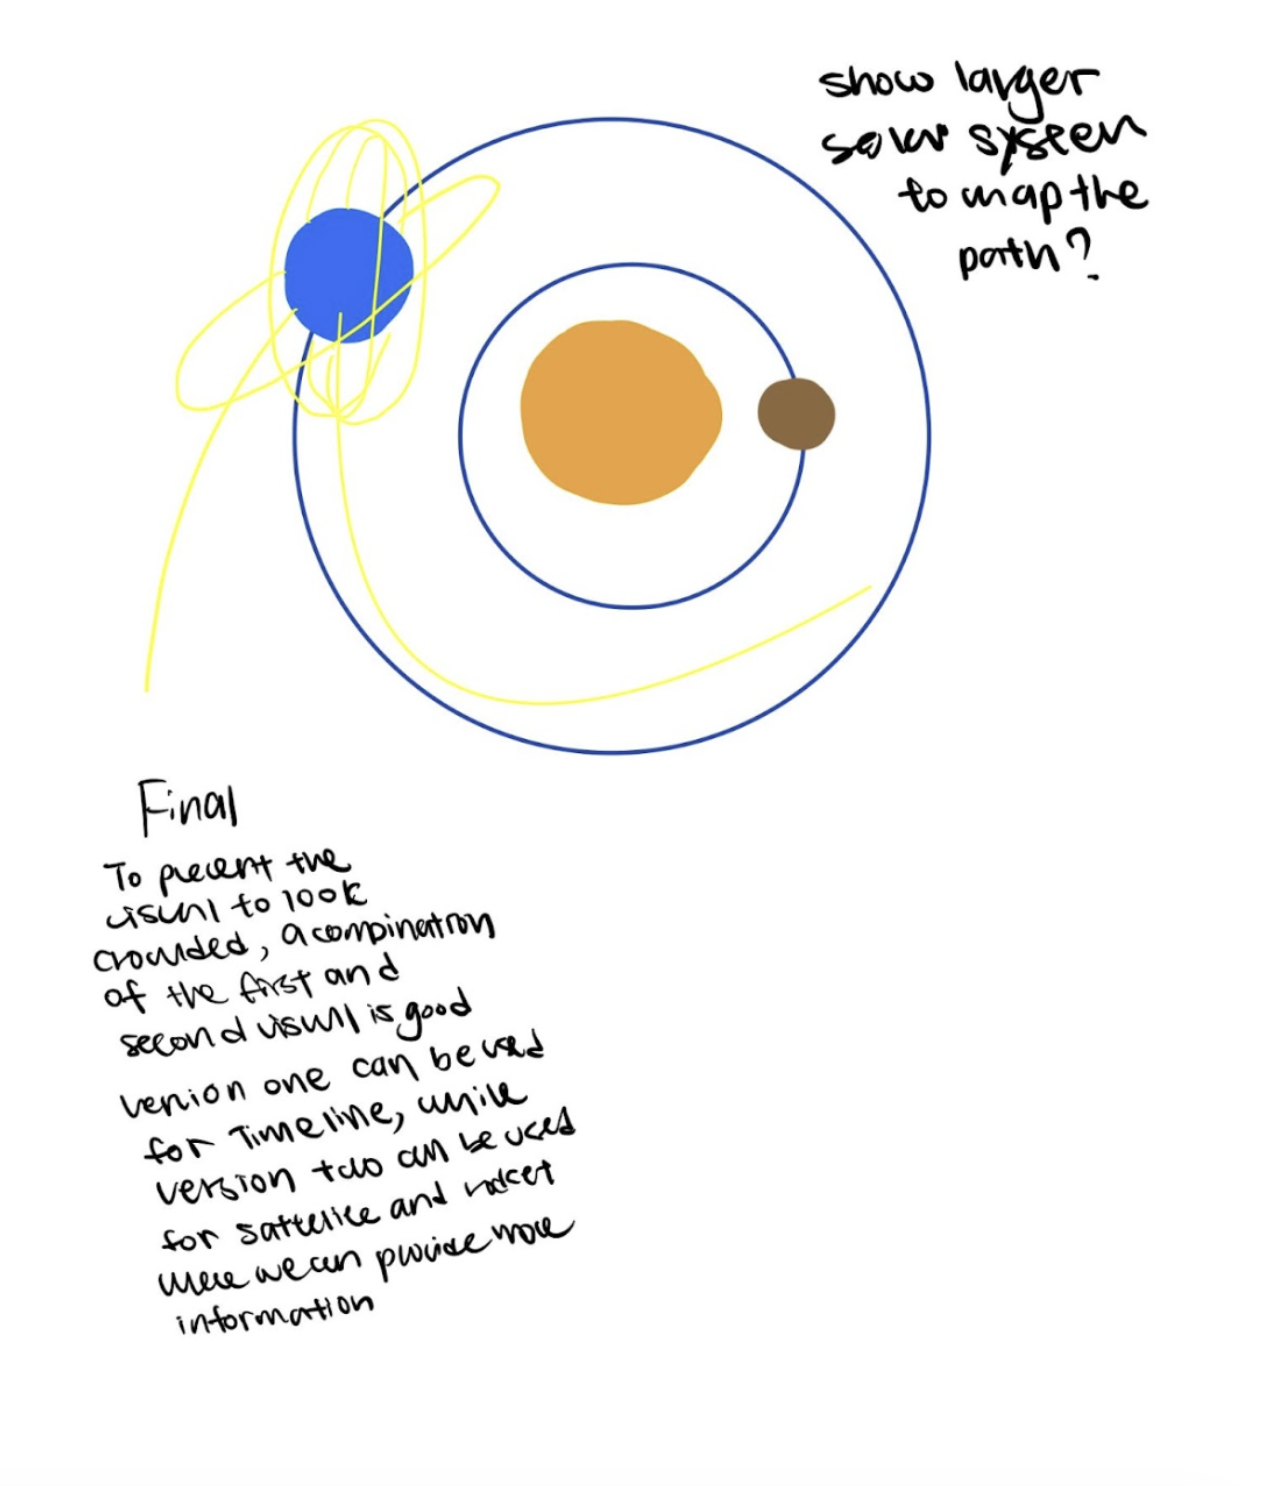 show larger
solar system
to map the
path?
Final
To prevent the
visual to look
crowded, a combination
of the first and
second visual is good
version one can be used
for Timeline, while
version two can be used
for sattelite and rocket
where we can provide more
information